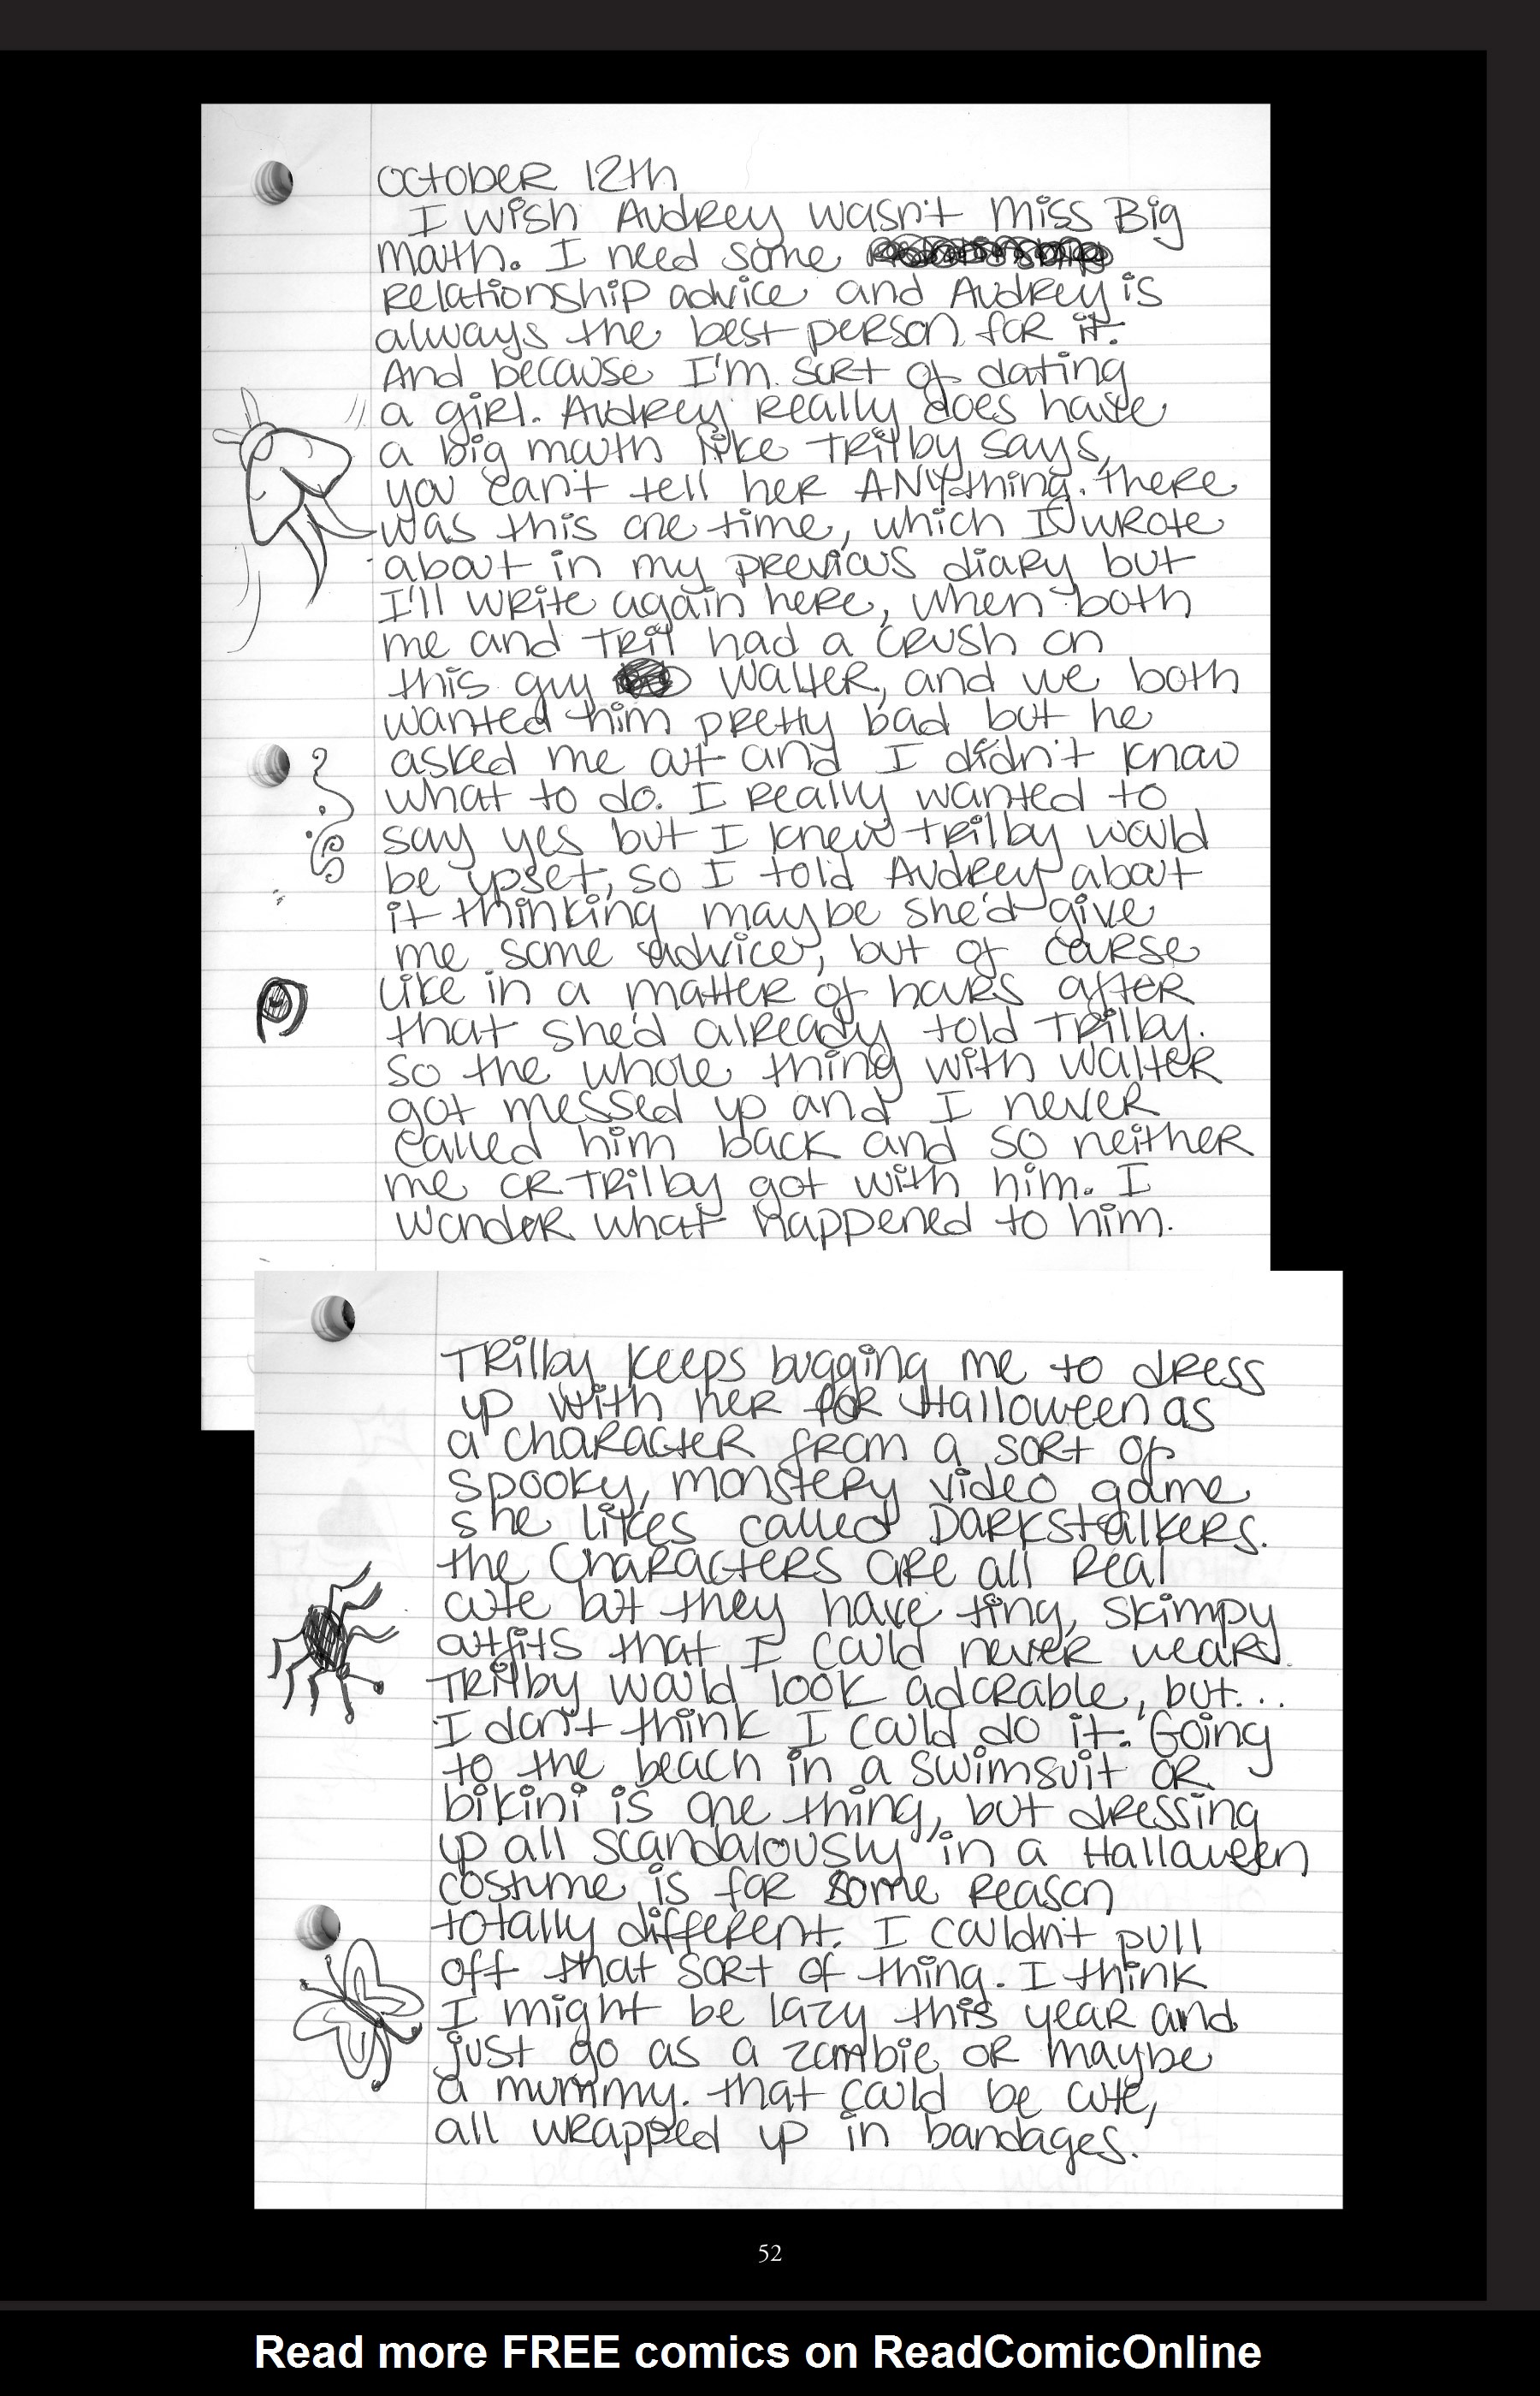 October 12th
I wish Audrey wasn't Miss Big
mouth. I need some
relationship advice and Audrey is
always the best person for it.
And because I'm sort of dating
a girl. Audrey really does have
a big mouth like Trilby says,
you can't tell her ANYthing. There
was this one time, which I wrote
about in my previous diary but
I'll write again here, when both
me and Tril had a crush on
this guy Walter, and we both
wanted him pretty bad but he
asked me out and I didn't know
what to do. I really wanted to
say yes but I knew Trilby would
be upset, so I told Audrey about
it thinking maybe she'd give
me some advice, but of course
like in a matter of hours after
that she'd already told Trilby.
So the whole thing with Walter
got messed up and I never
called him back and so neither
me or Trilby got with him. I
wonder what happened to him.
Trilby keeps bugging me to dress
up with her for Halloween as
a character from a sort of
spooky, monstery video game
she likes called Darkstalkers.
the characters are all real
cute but they have tiny, skimpy
outfits that I could never wear.
Trilby would look adorable, but...
I don't think I could do it. Going
to the beach in a swimsuit or
bikini is one thing, but dressing
up all scandalously in a Halloween
costume is for some reason
totally different. I couldn't pull
off that sort of thing. I think
I might be lazy this year and
just go as a zombie or maybe
a mummy. that could be cute,
all wrapped up in bandages.
52
Read more FREE comics on ReadComicOnline